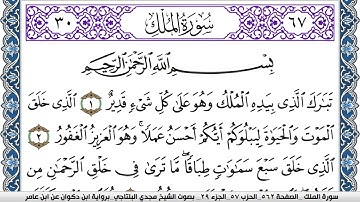 ٣٠ سُورَةُ المُلْكِ ٦٧
بِسْمِ اللَّهِ الرَّحْمَٰنِ الرَّحِيمِ
تَبَارَكَ الَّذِي بِيَدِهِ الْمُلْكُ وَهُوَ عَلَىٰ كُلِّ شَيْءٍ قَدِيرٌ ١ الَّذِي خَلَقَ
الْمَوْتَ وَالْحَيَوٰةَ لِيَبْلُوَكُمْ أَيُّكُمْ أَحْسَنُ عَمَلًا وَهُوَ الْعَزِيزُ الْغَفُورُ ٢
الَّذِي خَلَقَ سَبْعَ سَمَٰوَٰتٍ طِبَاقًا مَّا تَرَىٰ فِي خَلْقِ الرَّحْمَٰنِ مِن
سورة الملك_الصفحة ٥٦٢_الحزب ٥٧_الجزء ٢٩_ بصوت الشيخ مجدي البلتاجي_برواية ابن ذكوان عن ابن عامر